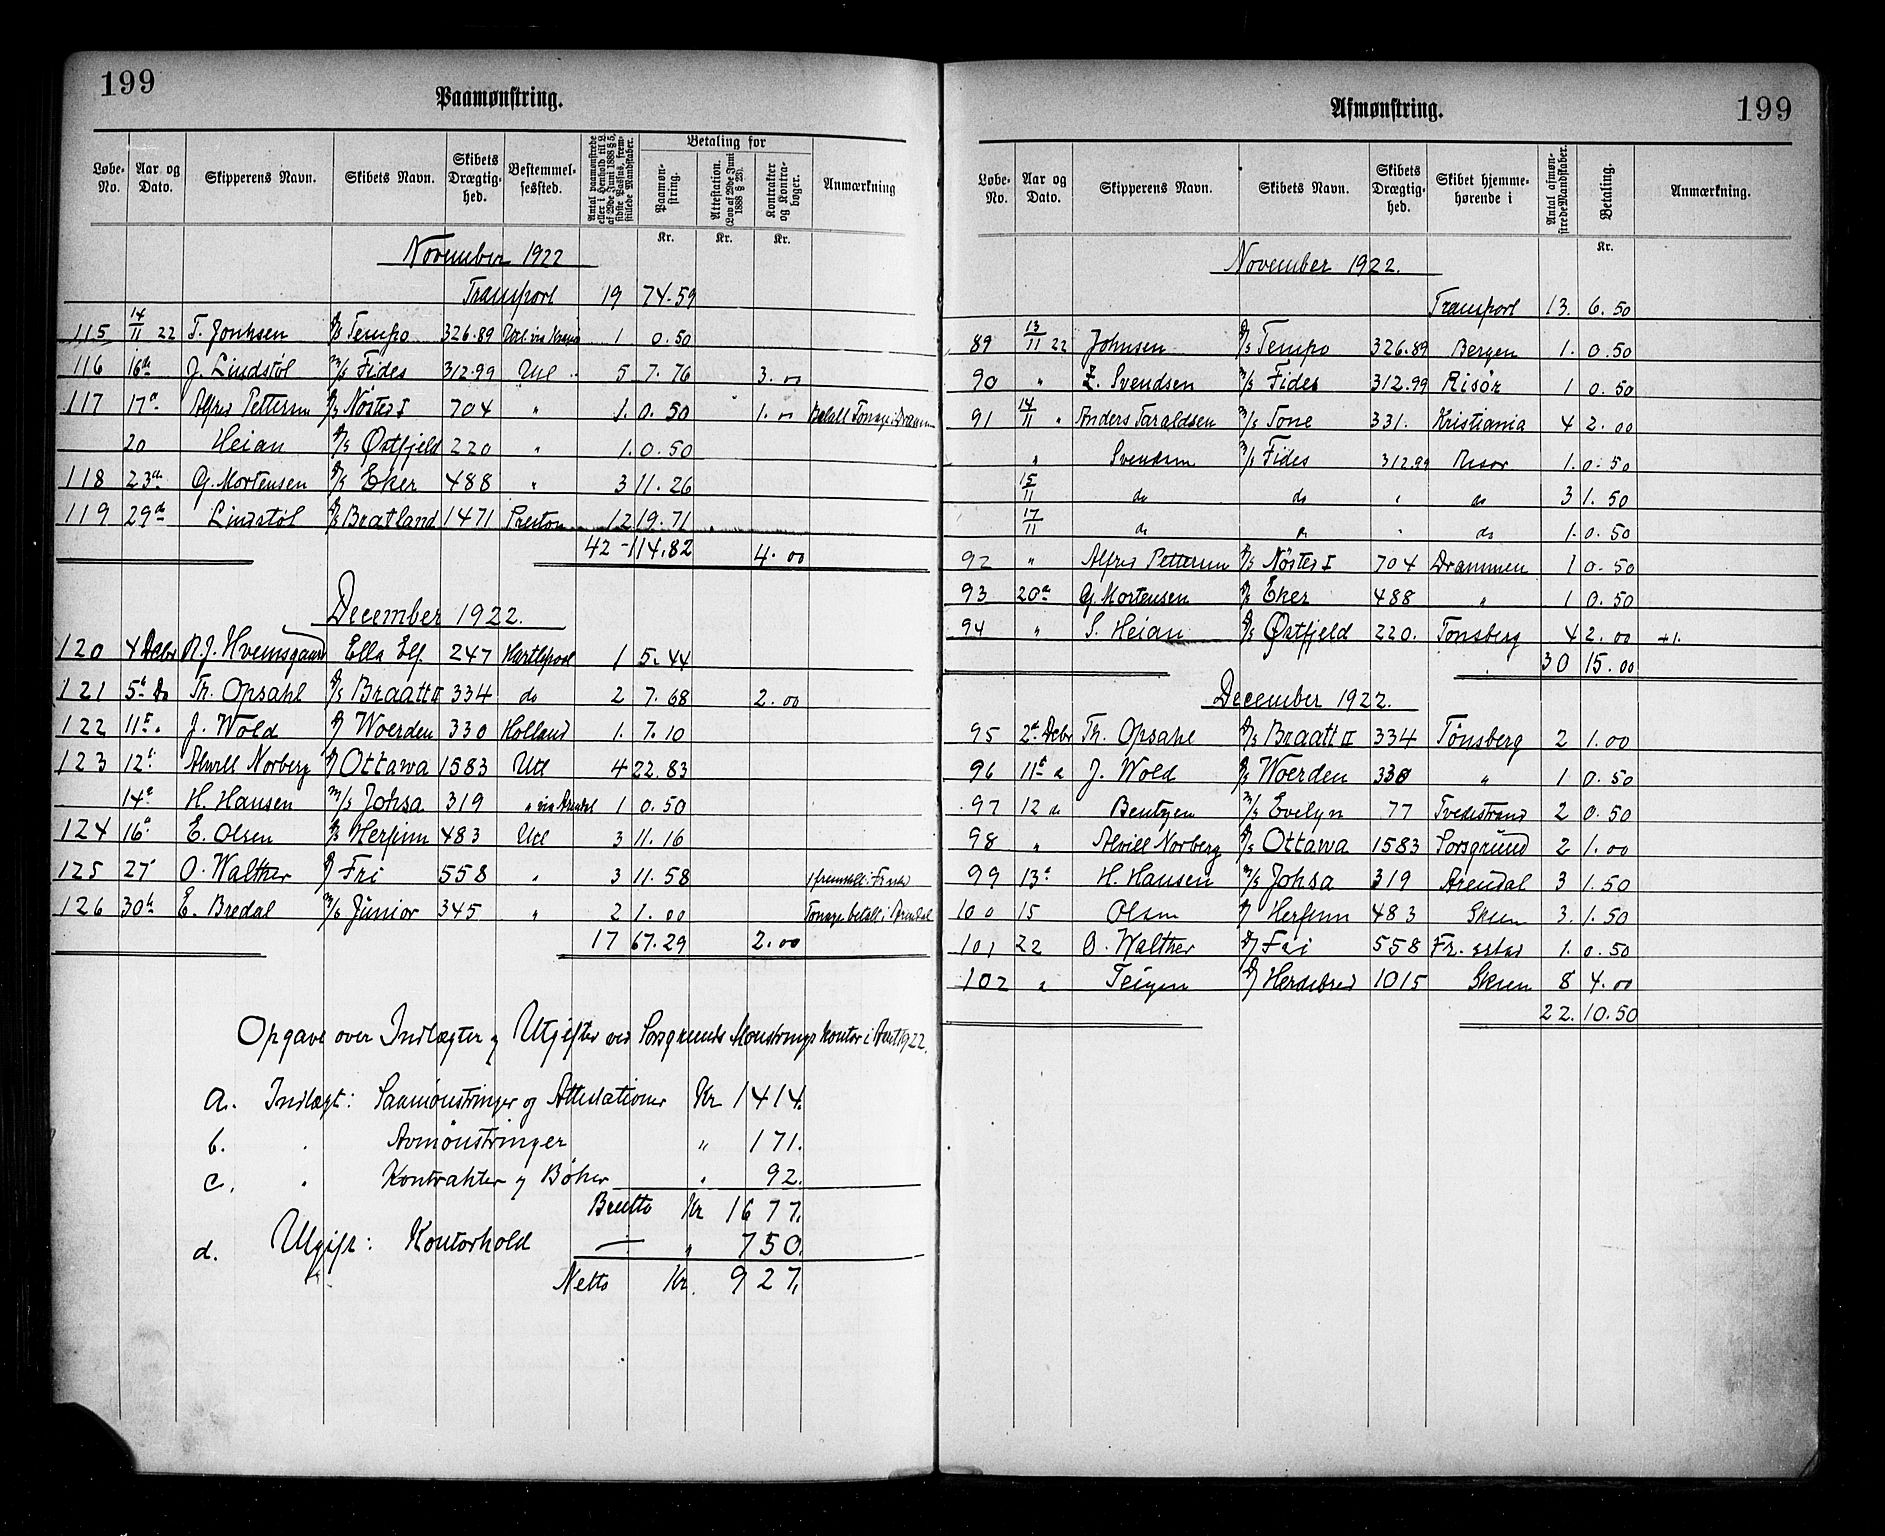 199
Paamønstring.
Løbe-No. Aar og Dato. Skipperens Navn. Skibets Navn. Skibets Drægtighed. Bestemmelsessted. Antal paamønstrede eller i Henhold til L. af 29de Juni 1888 § 5, sidste Passus, fremstillede Mandskaber. Betaling for Paamønstring. Attestation. (Lov af 29de Juni 1888 § 23). Kontrakter og Kontrabøger. Anmærkning
Kr. Kr. Kr.
November 1922
Transport 19 74.59
115 14/11 22 T. Jonhsen D/S Tempo 326.89 via 1 0.50
116 16de J. Lindstøl M/S Fides 312.99 Utl. 5 7.76 3.00
117 17de Alfred Pettersen D/S Nøsted I 704 " 1. 0.50 1.00 Betalt Tonage i Drammen
20 Heian D/S Østfjeld 220 " 1. 0.50
118 23de G. Mortensen D/S Eker 488 " 3 11.26
119 29de Lindstøl D/S Bratland 1471 Preston 12 19.71
42 114.82 4.00
December 1922.
120 4 Debr R.J. Hvemsgaard Ella Elf. 247 Hartlepool 1 5.44
121 5te Do Th. Opsahl D/S Braatt II 334 do 2 7.68 2.00
122 11te J. Wold D/ Woerden 330 Holland 1. 7.10
123 12te Norberg D/ Ottawa 1583 Utl 4 22.83
14de H. Hansen M/S Johsa 319 " via Arendal 1 0.50
124 16de E. Olsen D/S Herfinn 483 Utl 3 11.16
125 27 O. Walther D/ Fri 558 " 3 11.58 1 fremstill. i Fr.stad
126 30te E. Bredal M/S Junior 345 " 2 1.00 Tonage betalt i Arendal
17 67.29 2.00
Opgave over Indtægter og Utgifter ved Porsgrunds Mønstringskontor i Aaret 1922.
a. Indtægt: Paamønstringer og Attestationer Kr 1414.
b. " Avmønstringer " 171.
c. " Kontrakter og Bøker " 92.
Brutto Kr 1677.
d. Utgift: Kontorhold " 750.
Netto Kr. 927.
199
Afmønstring.
Løbe-No. Aar og Dato. Skipperens Navn. Skibets Navn. Skibets Drægtighed. Skibet hjemmehørende i Antal afmønstrede Mandskaber. Betaling. Anmærkning.
Kr.
November 1922.
Transport 13. 6.50
89 13/11 22 Johnsen D/S Tempo 326.89 Bergen 1. 0.50
90 " Svendsen M/S Fides 312.99 Risør 1 0.50
91 14/11 " Anders Taraldsen M/S Tone 331. Kristiania 4 2.00
" Svendsen M/S Fides 312.99 Risør 1. 0.50
15/11 do do " do 3 1.50
17/11 do do " do 1. 0.50
92 " Alfred Pettersen D/S Nøsted I 704 Drammen 1 0.50
93 20de G. Mortensen D/S Eker 488 " 1 0.50
94 " S. Heian D/S Østfjeld 220. Tønsberg 4 2.00 +1.
30 15.00
December 1922.
95 2de Debr Th. Opsahl D/S Braatt II 334 Tønsberg 2 1.00
96 11te " J. Wold D/S Woerden 330 " 1 0.50
97 12 do Bentzen M/S Evelyn 77 Tvedestrand 2 0.50
98 " Norberg D/S Ottawa 1583 Porsgrund 2 1.00
99 13de H. Hansen M/S Johsa 319 Arendal 3 1.50
100 15 Olsen D/ Herfinn 483 Skien 3. 1.50
101 22 O. Walther D/ Fri 558 Fr.stad 1. 0.50
102 " Teigen D/ Herdebred 1015 Skien 8 4.00
22. 10.50